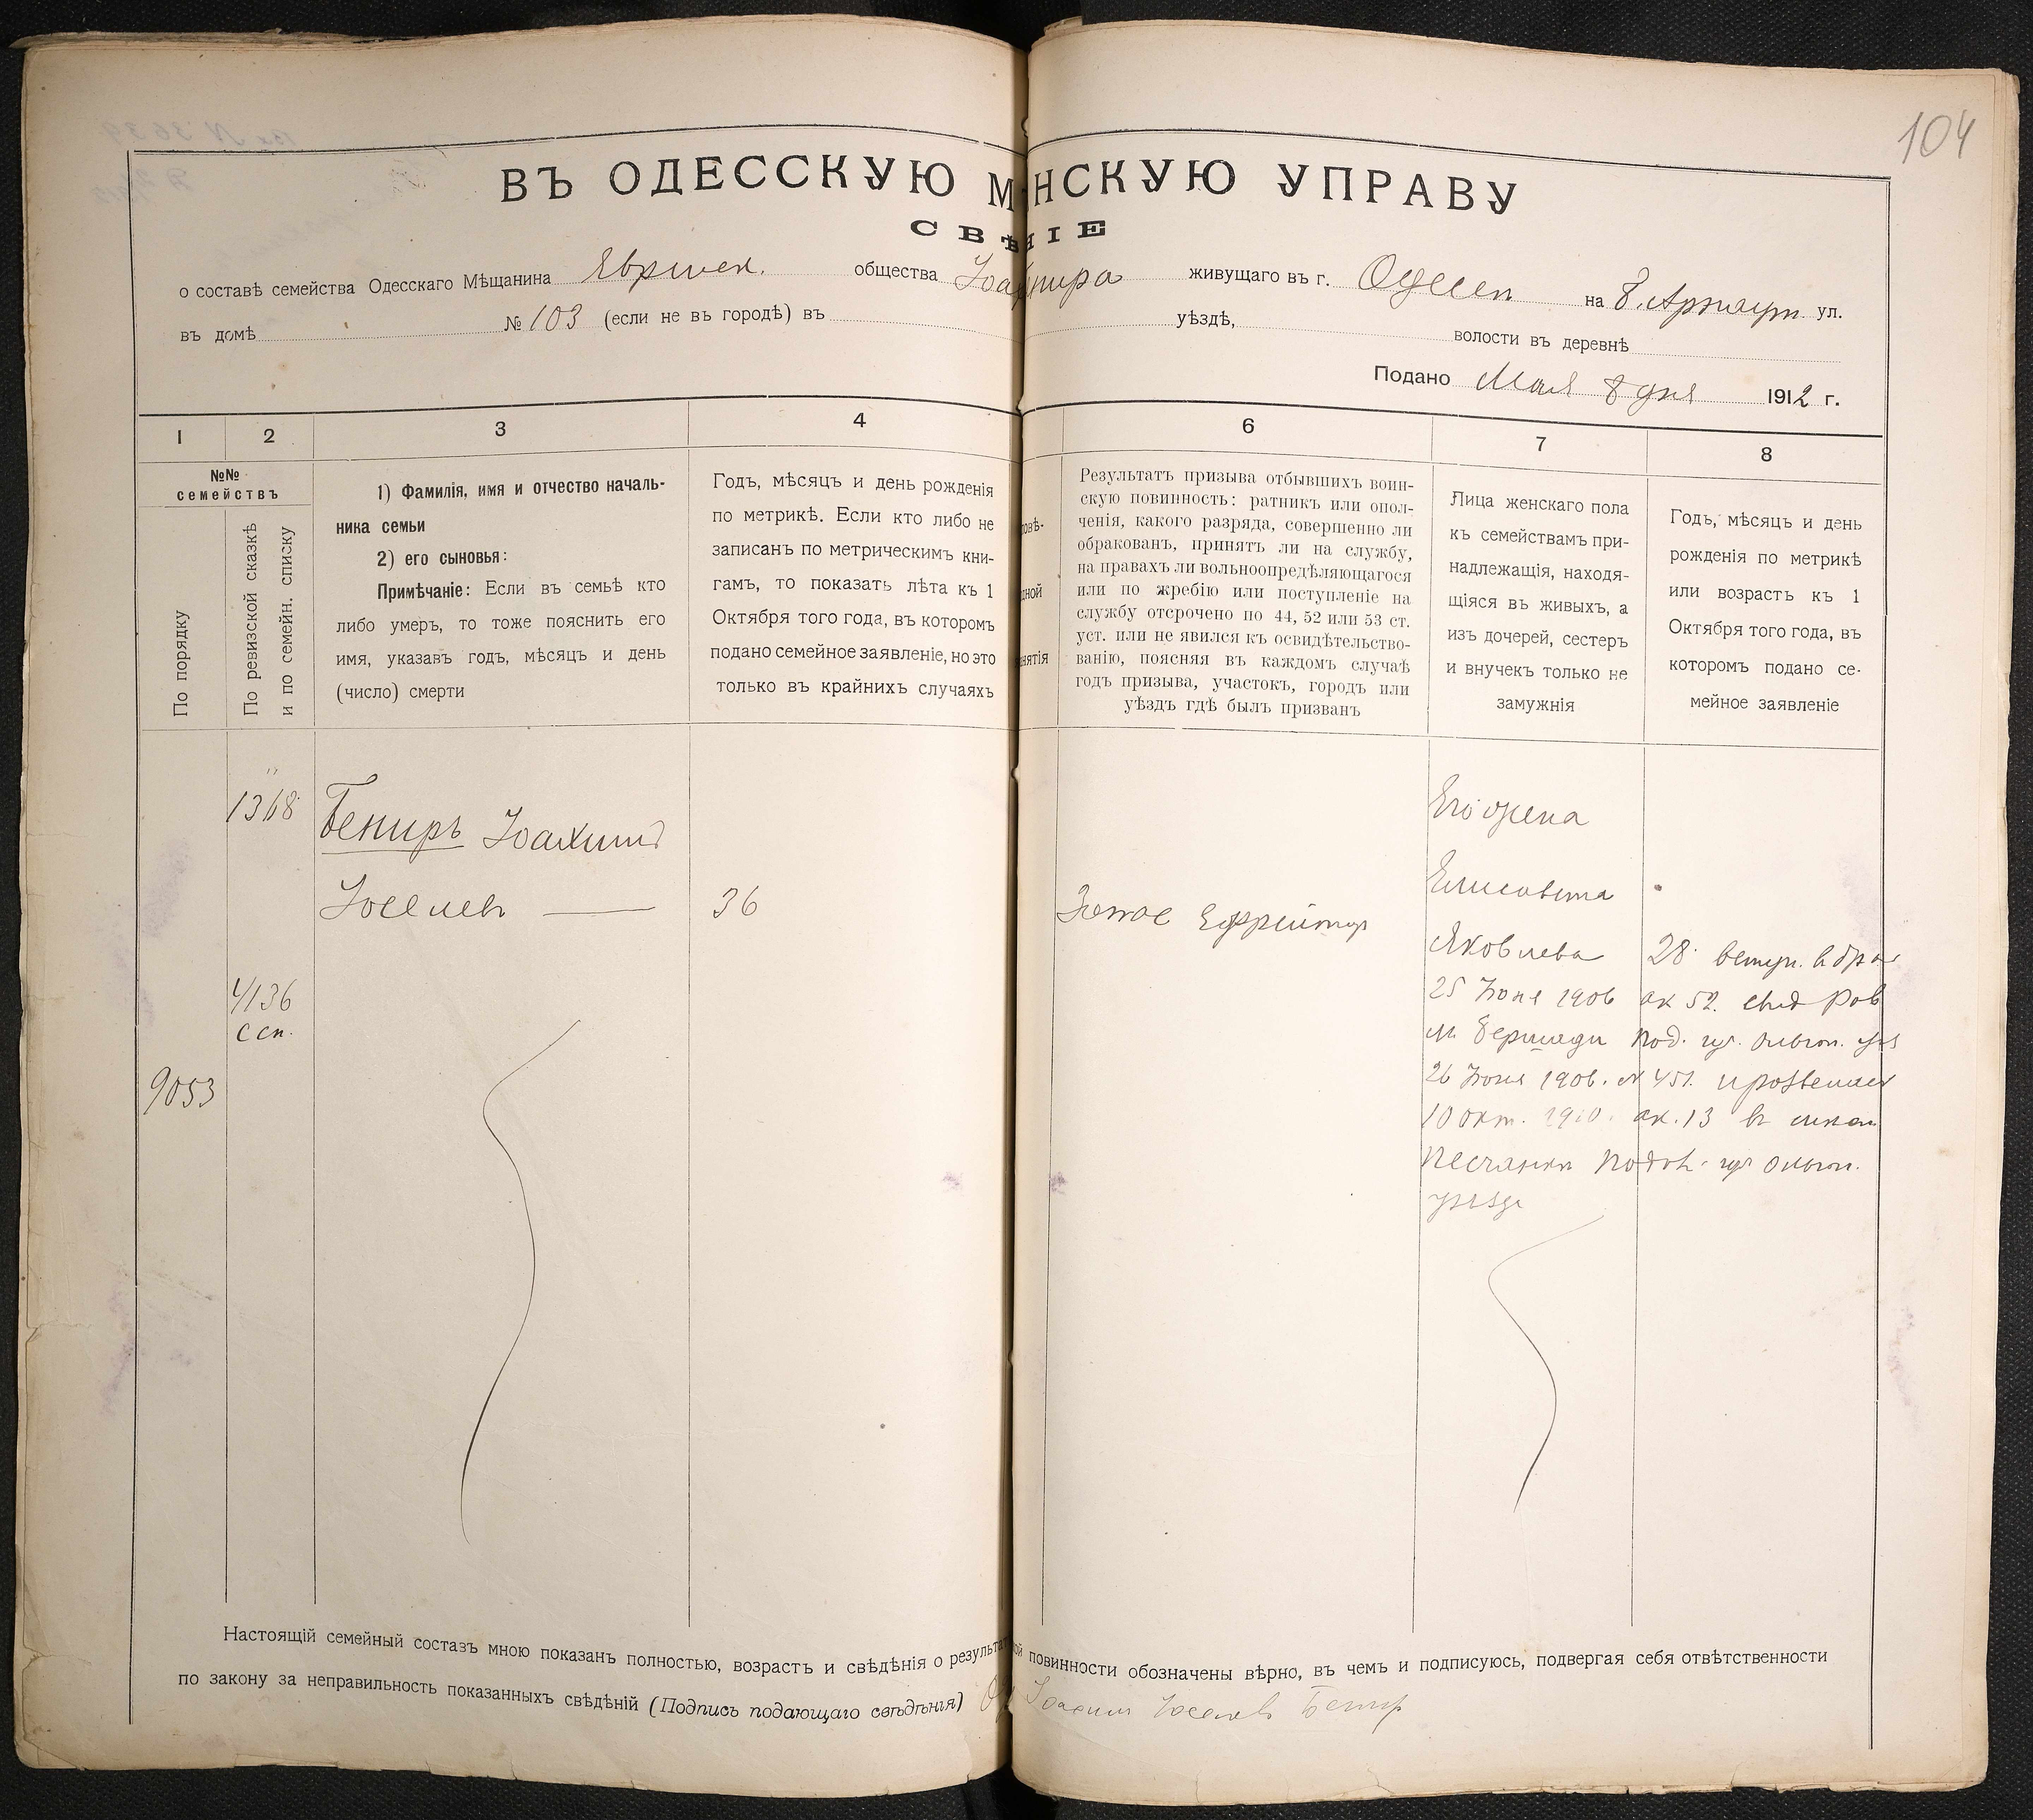 104
ВЪ ОДЕССКУЮ М НСКУЮ УПРАВУ
СВѢ НІЕ
о составѣ семейства Одесскаго Мѣщанина Еврейск. общества живущаго въ г. Одессѣ на Б. Арнаут. ул.
въ домѣ № 103 (если не въ городѣ) въ уѣздѣ, волости въ деревнѣ
Подано Мая 8 дня 1912 г.
1 2 3 4 6 7 8
№№ семействъ
По порядку
По ревизской сказкѣ
и по семейн. списку
1) Фамилія, имя и отчество началь-
ника семьи
2) его сыновья:
Примѣчаніе: Если въ семьѣ кто
либо умеръ, то тоже пояснить его
имя, указавъ годъ, мѣсяцъ и день
(число) смерти
Годъ, мѣсяцъ и день рожденія
по метрикѣ. Если кто либо не
записанъ по метрическимъ кни-
гамъ, то показать лѣта къ 1
Октября того года, въ которомъ
подано семейное заявленіе, но это
только въ крайнихъ случаяхъ
повѣ-
дной
нятія
Результатъ призыва отбывшихъ воин-
скую повинность: ратникъ или опол-
ченія, какого разряда, совершенно ли
обракованъ, принятъ ли на службу,
на правахъ ли вольноопредѣляющагося
или по жребію или поступленіе на
службу отсрочено по 44, 52 или 53 ст.
уст. или не явился къ освидѣтельство-
ванію, поясняя въ каждомъ случаѣ
годъ призыва, участокъ, городъ или
уѣздъ гдѣ былъ призванъ
Лица женскаго пола
къ семействамъ при-
надлежащія, находя-
щіяся въ живыхъ, а
изъ дочерей, сестеръ
и внучекъ только не
замужнія
Годъ, мѣсяцъ и день
рожденія по метрикѣ
или возрастъ къ 1
Октября того года, въ
которомъ подано се-
мейное заявленіе
1368
Бениръ Іоахимъ
Іоселевъ — 36
4136
ссп.
9053
Запас Ефрейтор
Его жена
Елисавета
Яковлева 28 вступ. в бра
25 Іюня 1906 ак 52. свид Рав
м Бершади Под. гу. Ольгоп. у
26 Іюня 1906. № 451.
10 окт. 1910. ак. 13 в
Песчанки Подол. гу Ольгоп.
уѣзда
Настоящій семейный составъ мною показанъ полностью, возрастъ и свѣдѣнія о результа ой повинности обозначены вѣрно, въ чемъ и подписуюсь, подвергая себя отвѣтственности
по закону за неправильность показанныхъ свѣдѣній (Подпись подающаго свѣдѣнія) Іоахим Іоселев Бенир